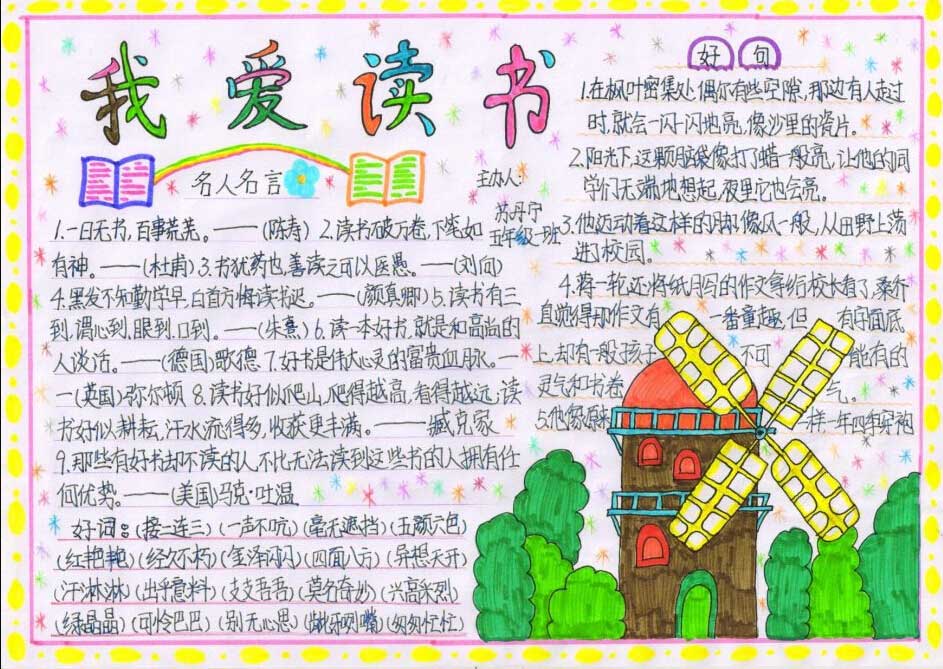 我爱读书
名人名言
主办人:
苏丹宁
五年级一班
1.一日无书,百事荒芜。——(陈寿) 2.读书破万卷,下笔如
有神。——(杜甫) 3.书犹药也,善读之可以医愚。——(刘向)
4.黑发不知勤学早,白首方悔读书迟。——(颜真卿) 5.读书有三
到,谓心到,眼到,口到。——(朱熹) 6.读一本好书,就是和高尚的
人谈话。——(德国)歌德 7.好书是伟大心灵的富贵血脉。—
—(英国)弥尔顿 8.读书好似爬山,爬得越高,看得越远;读
书好似耕耘,汗水流得多,收获更丰满。——臧克家
9.那些有好书却不读的人不比无法读到这些书的人拥有任
何优势。——(美国)马克·吐温
好词:(接二连三)(一声不吭)(毫无遮挡)(五颜六色)
(红艳艳)(经久不朽)(金泽闪闪)(四面八方)(异想天开)
(汗淋淋)(出乎意料)(支支吾吾)(莫名奇妙)(兴高采烈)
(绿晶晶)(可怜巴巴)(别无心思)(龇牙咧嘴)(匆匆忙忙)
好句
1.在枫叶密集处,偶尔有些空隙,那边有人走过
时,就会一闪一闪地亮,像沙里的瓷片。
2.阳光下,这颗脑袋像打了蜡一般亮,让他的同
学们无端地想起,夜里它也会亮。
3.他迈动着这样的脚像风一般,从田野上荡
进校园。
4.蒋一轮还将纸月写的作文拿给校长看了,桑乔
直觉得那作文有 一番童趣,但 有字面底
上,却有一般孩子 不可 能有的
灵气和书卷 气。
5.他家 一样一年四季穿袍